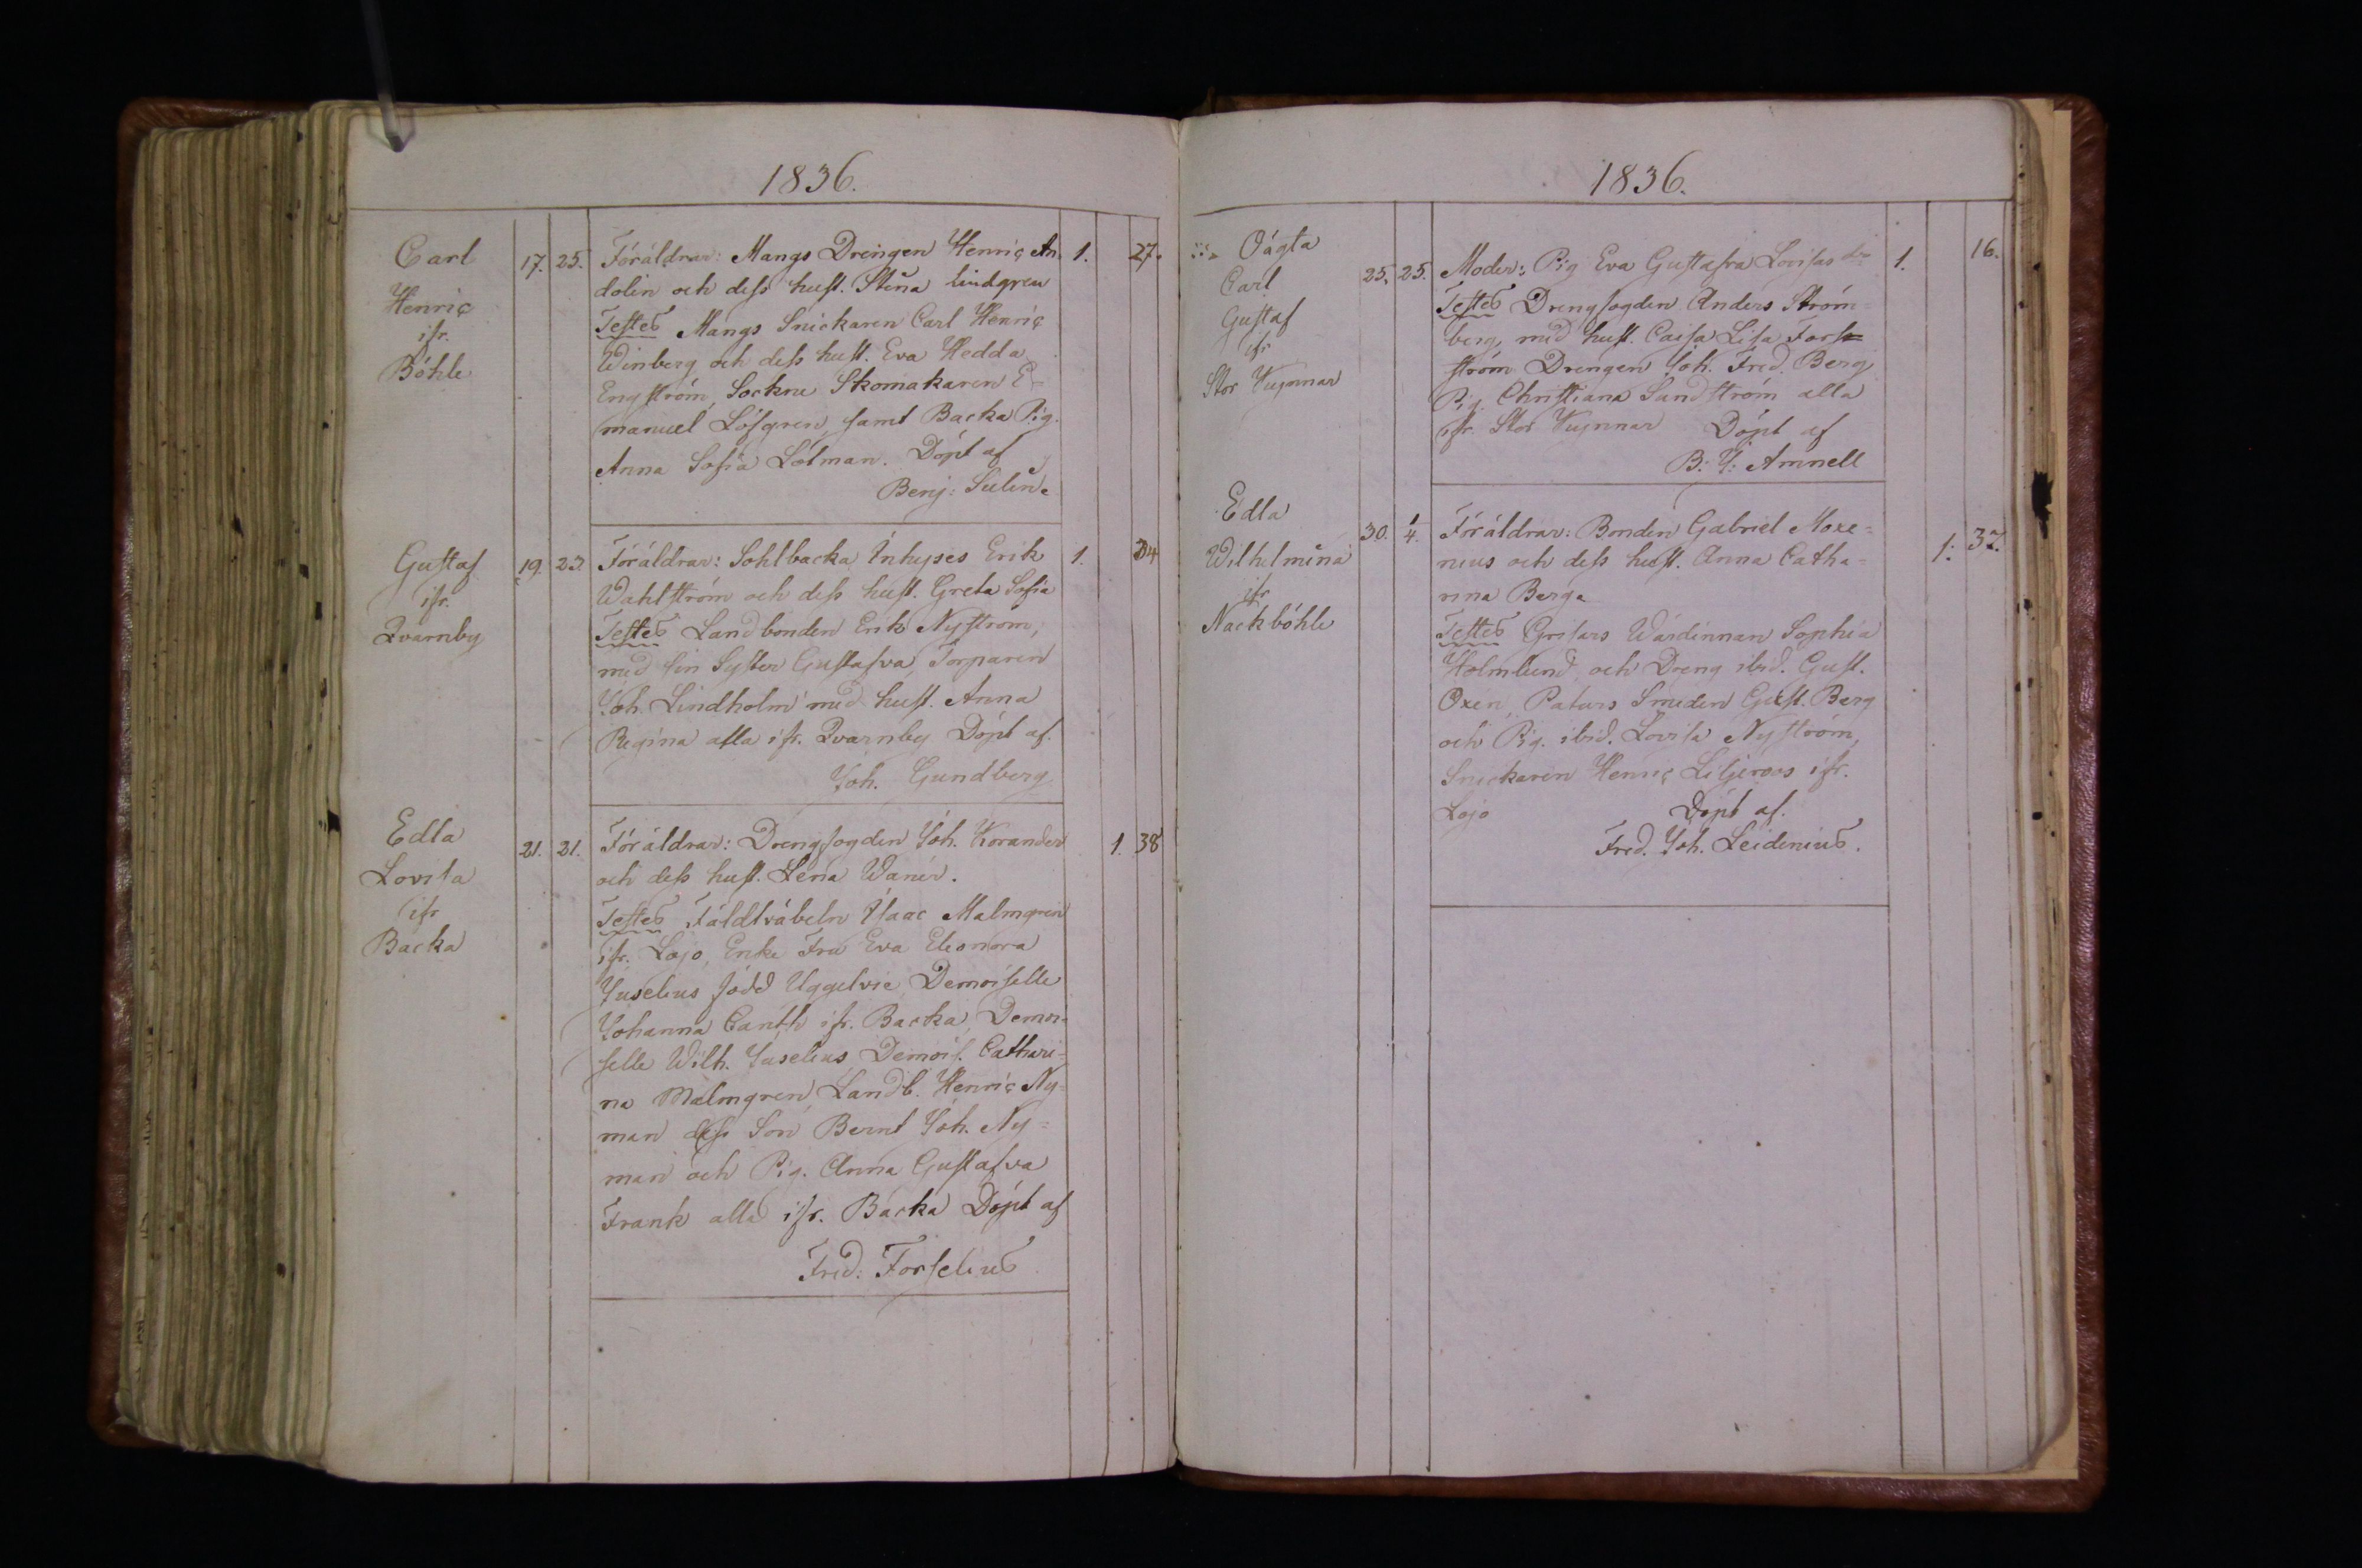 1836.
Carl
Henric
ifr.
Böhle
17. 25. Föräldrar: Mangs Drengen Henric An- 1. 27.
dolin och dess hust. Stina Lindgren
Testes Mangs Snickaren Carl Henric
Winberg och dess hust. Eva Hedda
Engström, Sockne Skomakaren E-
manuel Löfgren samt Backa Pig.
Anna Sofia Lötman. Döpt af
Benj: Sulin.
Gustaf
ifr.
Qvarnby
19. 23. Föräldrar: Sohlbacka Inhyses Erik 1. 24
Wahlström och dess hust. Greta Sofia
Testes Landbonden Erik Nyström,
med sin Syster Gustafva, Torparen
Joh. Lindholm med hust. Anna
Regina alla ifr. Qvarnby Döpt af.
Joh. Gundberg
Edla
Lovisa
ifr
Backa
21. 21. Föräldrar: Drengfogden Joh. Korander 1. 38
och dess hust. Lena Wanér.
Testes Fäldtväbeln Isaac Malmgren
ifr. Lojo, Enke Fru Eva Eleonora
Juselius född Uggelvie, Demoiselle
Johanna Canth ifr. Backa, Demoi-
selle Wilh. Juselius Demois. Cathari-
na Malmgren, Landb. Henric Ny-
man dess Son Bernt Joh. Ny-
man och Pig. Anna Gustafva
Frank alla ifr. Backa Döpt af
Fred: Forselius
1836.
Oägta
Carl
Gustaf
ifr
Stor Kuponar
25. 25. Moder: Pig Eva Gustafva Lovisas dr 1. 16.
Testes Drengfogden Anders Ström-
berg, med hust. Caisa Lisa Fors-
ström Drengen Joh. Fred. Berg
Pig. Christiana Sandström alla
ifr. Stor Döpt af
B: J: Amnell
Edla
Wilhelmina
ifr
Nackböhle
30. 1/4. Föräldrar: Bonden Gabriel Moxe- 1. 37.
nius och dess hust. Anna Catha-
rina Berga
Testes Grisars Wärdinnan Sophia
Holmlund, och Dreng ibid. Gust.
Oxen, Paturs Smeden Gust. Berg
och Pig. ibid. Lovisa Nyström,
Snickaren Henric Liljeroos ifr.
Lojo Döpt af.
Fred. Joh. Leidenius.